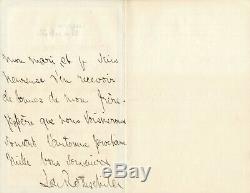 mon mari et je suis
heureuse d'en recevoir
de bonnes de mon frère
J'espère que nous voisinerons
souvent l'automne prochain
Mille bons souvenirs
L de Rothschild